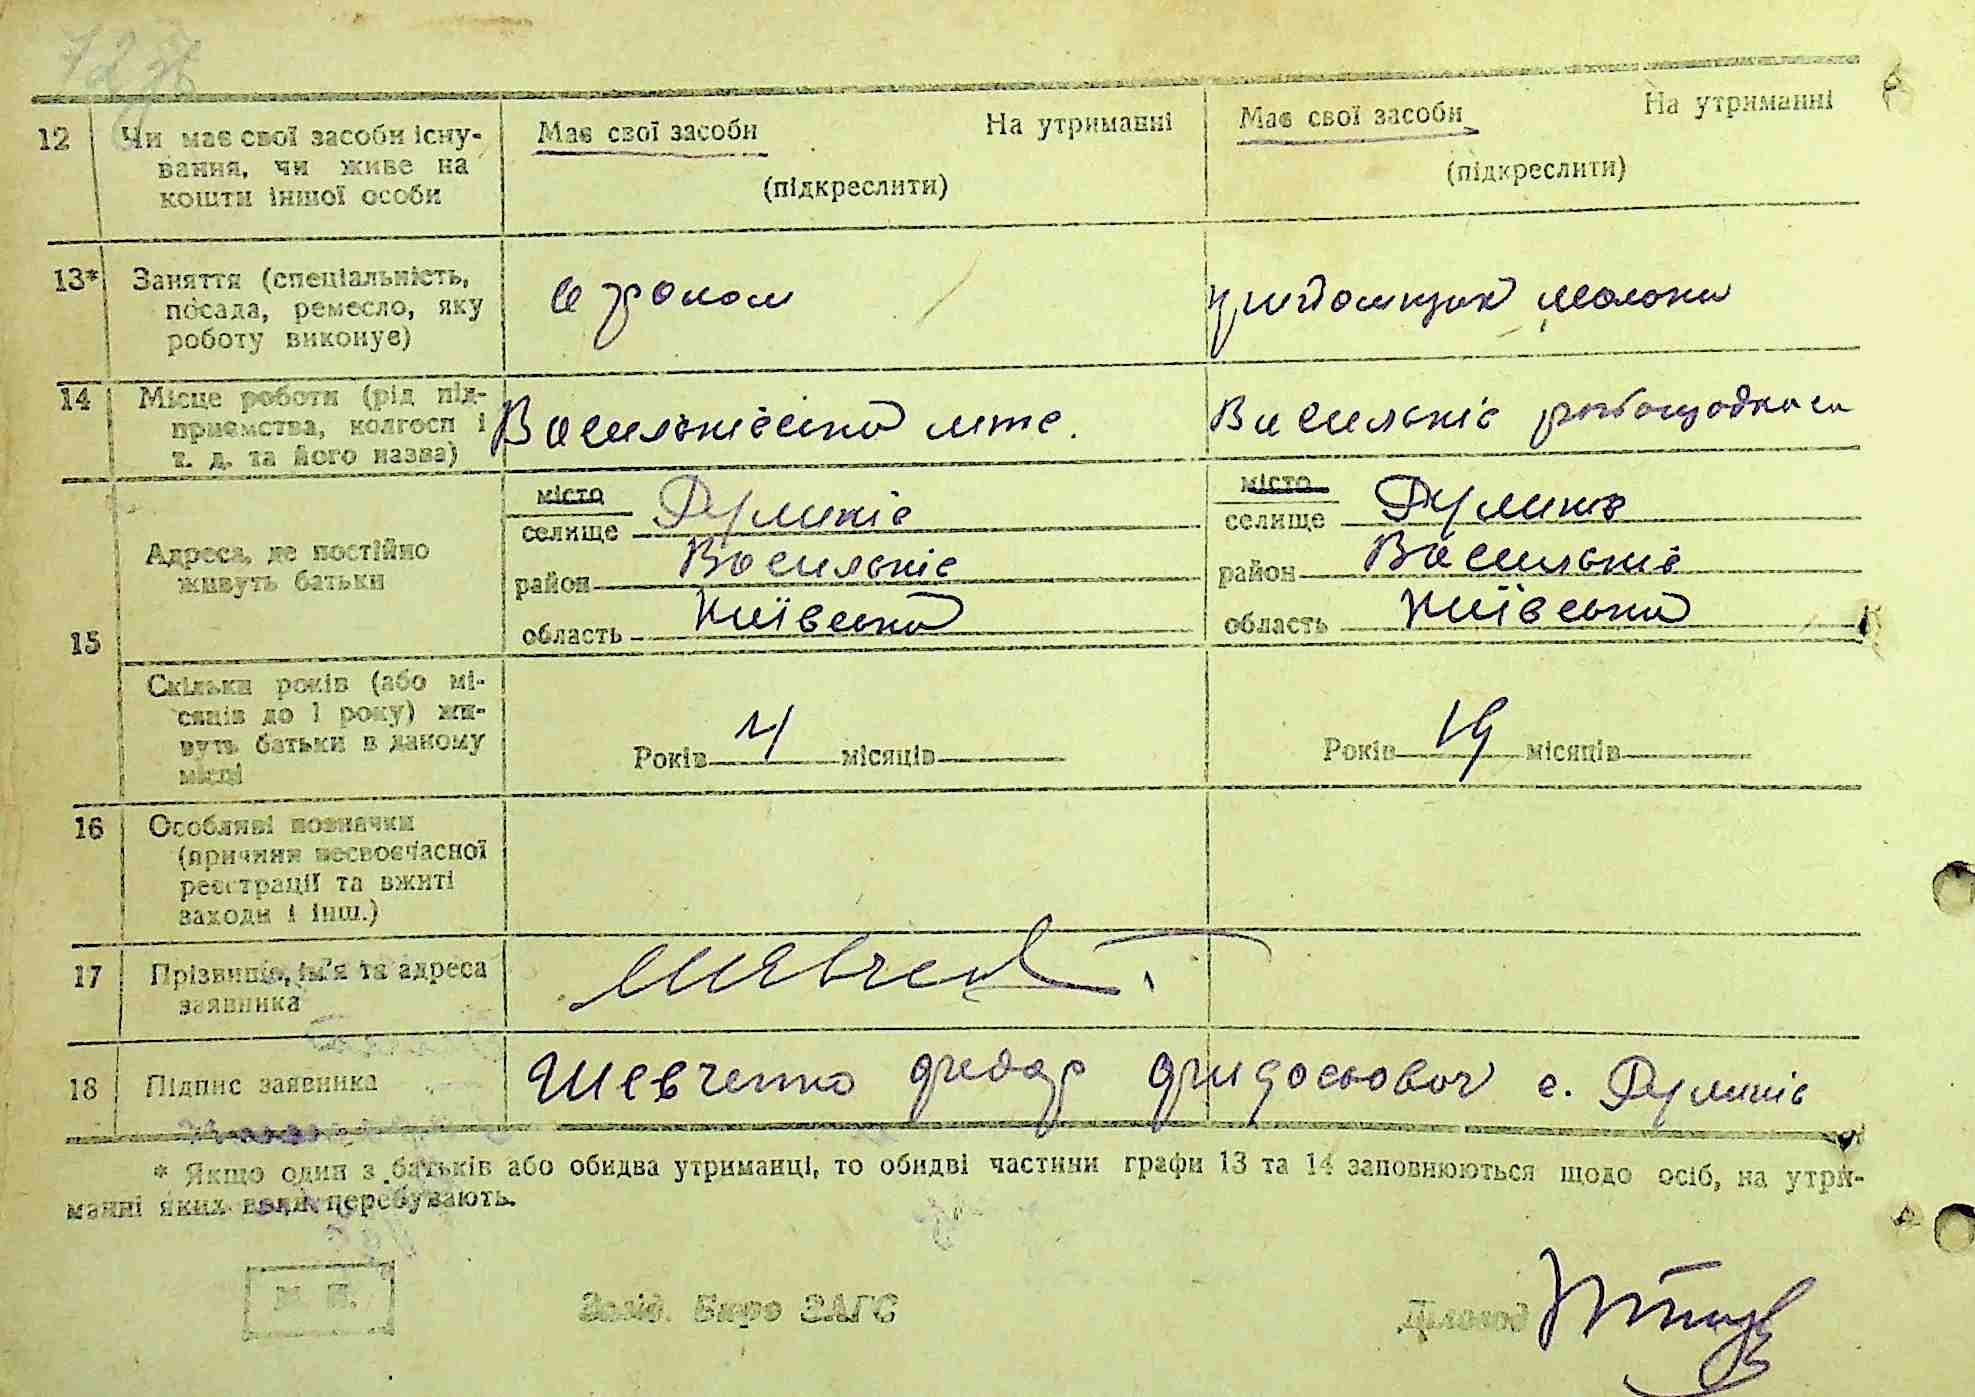 12 Чи має свої засоби існу-
вання, чи живе на
кошти іншої особи
Має свої засоби На утриманні
(підкреслити)
Має свої засоби На утриманні
(підкреслити)
13* Заняття (спеціальність,
посада, ремесло, яку
роботу виконує)
молока
14 Місце роботи (рід під-
приємства, колгосп і
т. д. та його назва)
Васильківська мтс.
Васильків
15 Адреса, де постійно
живуть батьки
місто
селище Дуликів
район Васильків
область Київська
місто
селище Дуликів
район Васильків
область Київська
Скільки років (або мі-
сяців до 1 року) жи-
вуть батьки в даному
місці
Років 4 місяців
Років 19 місяців
16 Особливі позначки
(причини несвоєчасної
реєстрації та вжиті
заходи і інш.)
17 Прізвище, ім'я та адреса
заявника
18 Підпис заявника
Шевченко Федор с. Дуликів
* Якщо один з батьків або обидва утриманці, то обидві частини графи 13 та 14 заповнюються щодо осіб, на утри-
манні яких вони перебувають.
М. П.
Завід. Бюро ЗАГС
Діловод